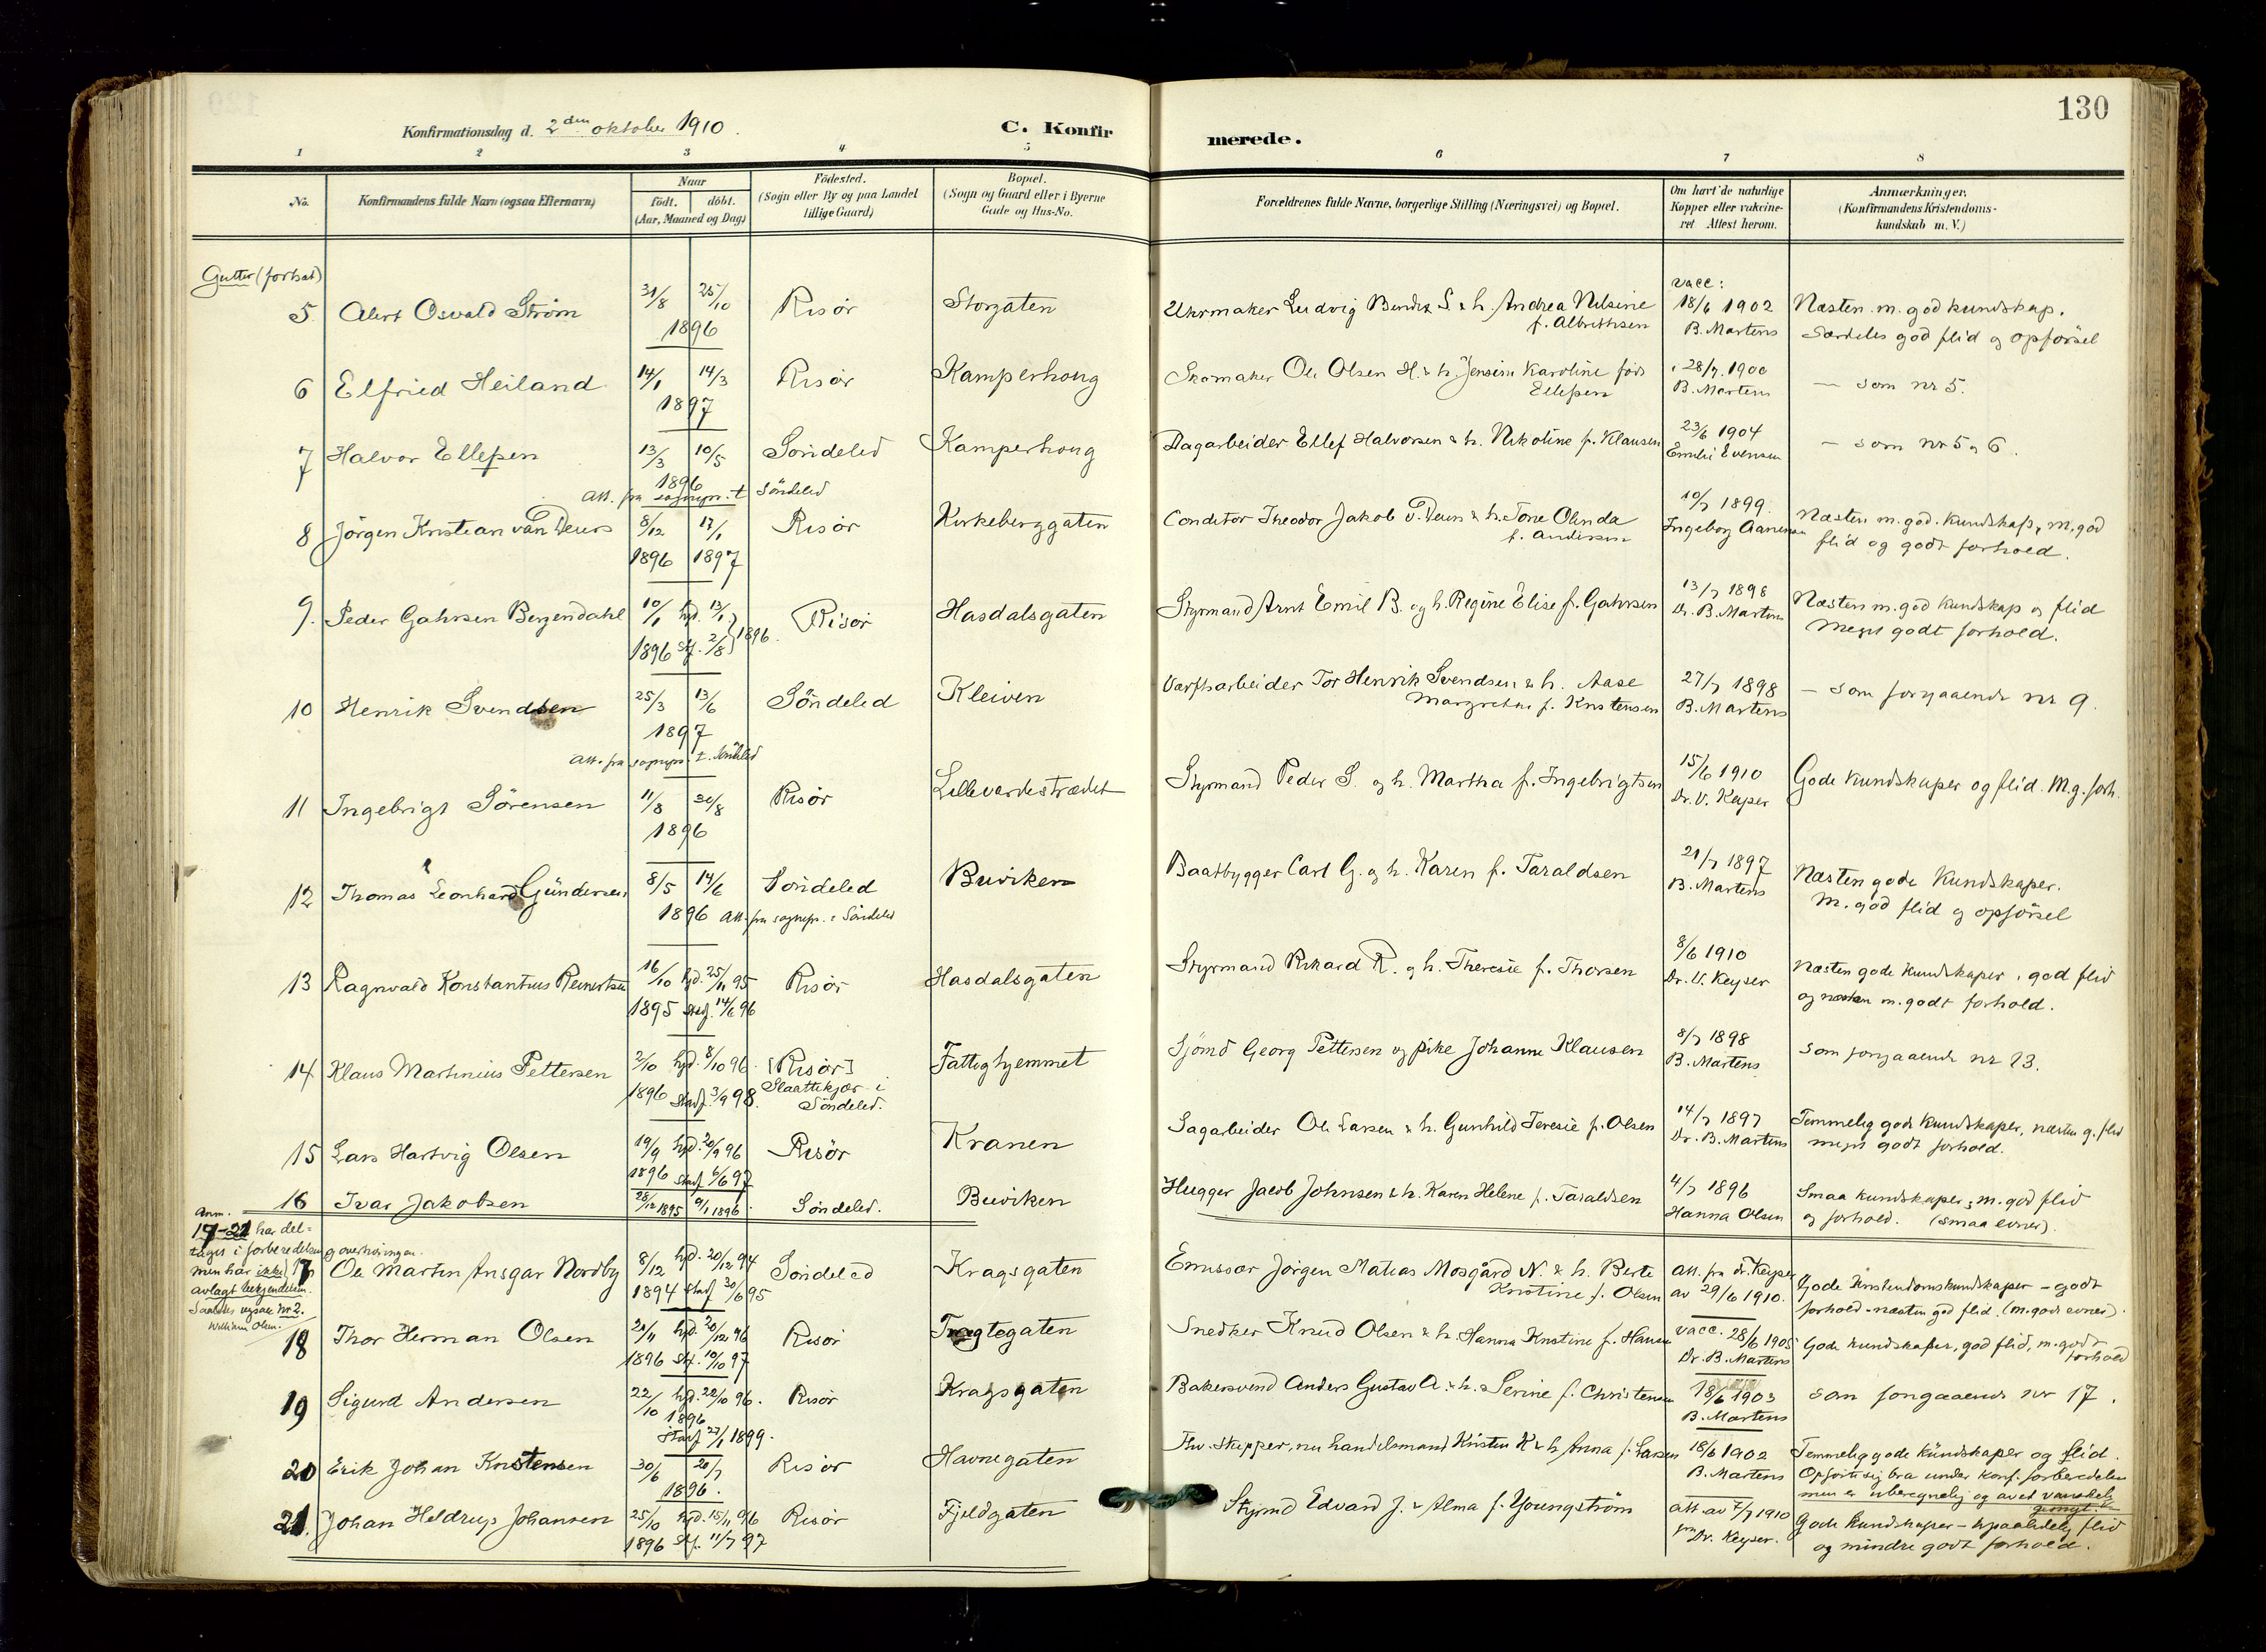 130
Konfirmationsdag d. 2den oktober 1910.
C. Konfirmerede.
1 2 3 4 5 6 7 8
No.
Konfirmandens fulde Navn (ogsaa Efternavn)
Naar
født. døbt.
(Aar, Maaned og Dag)
Fødested.
(Sogn eller By og paa Landet
tillige Gaard)
Bopæl.
(Sogn og Gaard eller i Byerne
Gade og Hus-No.
Forældrenes fulde Navne, borgerlige Stilling (Næringsvei) og Bopæl.
Om havt de naturlige
Kopper eller vakcine-
ret Attest herom.
Anmærkninger.
(Konfirmandens Kristendoms-
kundskab m. V.)
Gutter (fortsat)
5 Alert Osvald Strøm 31/8 25/10 1896 Risør Storgaten Uhrmaker Ludvig S. & h. Andrea Nilsine f. Albrethsen vacc: 18/6 1902 B. Martens Næsten m. god kundskap. Særdeles god flid og opførsel
6 Elfried Heiland 14/1 14/3 1897 Risør Kamperhoug Skomaker Ole Olsen H. & h. Jensine Karoline født Ellefsen 28/7 1900 B. Martens — som nr 5.
7 Halvor Ellefsen 13/3 10/5 1896 Søndeled Kamperhoug Dagarbeider Ellef Halvorsen & h. Nikoline f. Klausen 23/6 1904 Emilie Evensen — som nr 5 og 6.
att. fra sognepr. t. Søndeled
8 Jörgen Kristian van Deurs 8/12 1896 17/1 1897 Risør Kirkeberggaten Conditor Theodor Jakob v. Deurs & h. Tone Olinda f. Andersen 10/7 1899. Ingeborg Aanensen Næsten m. god kundskap, m. god flid og godt forhold.
9. Peder Gahrsen Bergendahl 10/1 1896 hjd. 13/1 stf. 2/8 1896. Risør Hasdalsgaten Styrmand Arnt Emil B. og h. Regine Elise f. Gahrsen 13/7 1898 Dr. B. Martens Næsten m. god kundskap og flid meget godt forhold.
10 Henrik Svendsen 25/3 13/6 1897 Søndeled Kleiven Værftsarbeider Tor Henrik Svendsen & h. Aase Margrethe f. Kristensen 27/7 1898 B. Martens — som forgaaende nr 9.
att. fra sognepr. t. Søndeled
11 Ingebrigt Sörensen 11/8 30/8 1896 Risør Lillevardestrædet Styrmand Peder S. og h. Martha f. Ingebrigtsen 15/6 1910 Dr. V. Keyser Gode kundskaper og flid. M.g. forh.
12 Thomas Leonhard Gundersen 8/5 14/6 1896 att. fra sognepr. i Søndeled Søndeled Buviken Baadbygger Carl G. og h. Karen f. Taraldsen 21/7 1897 B. Martens Næsten gode kundskaper. M. god flid og opførsel
13 Ragnvald Konstantius Reinertsen 16/10 1895 hjd. 25/11 95 stadf. 14/6 96 Risør Hasdalsgaten Styrmand Rikard R. og h. Theresie f. Thorsen 8/6 1910 Dr. V. Keyser Næsten gode kundskaper, god flid og næsten m. godt forhold.
14 Klaus Martinius Pettersen 2/10 1896 hjd. 8/10 96. stadf. 3/9 98. [Risør] Slaattekjær i Søndeled. Fattighjemmet Sjømd Georg Pettersen og pike Johanne Klausen 8/7 1898 B. Martens som forgaaende nr 13.
15 Lars Hartvig Olsen 19/9 1896 hjd. 20/9 96 stadf. 6/6 97 Risør Kranen Sagarbeider Ole Larsen & h. Gunhild Teresie f. Olsen 14/7 1897 Dr. B. Martens Temmelig gode kundskaper, næsten g. flid meget godt forhold.
16 Ivar Jakobsen 28/12 1895 9/1 1896. Søndeled. Buviken Hugger Jacob Johnsen & h. Karen Helene f. Taraldsen 4/7 1896 Hanna Olsen Smaa kundskaper, m. god flid og forhold. (smaa evner).
Anm.
17-21 har del-
taget i forberedelsen og overhøringen.
men har ikke
avlagt bekjendelsen.
Saaledes ogsaa nr 2.
William Olsen.
17 Ole Martin Ansgar Nordby 8/12 1894 hjd. 20/12 94 stadf. 30/6 95 Søndeled Kragsgaten Emissær Jørgen Matias Mosgård N. & h. Berte Kristine f. Olsen att. fra dr. Keyser av 29/6 1910. Gode kristendomskundskaper - godt forhold - næsten god flid. (m. gode evner).
18 Thor Herman Olsen 21/11 1896 hjd. 20/12 96 stf. 10/10 97 Risør Tragtegaten Snedker Knud Olsen & h. Hanna Kristine f. Hansen vacc. 28/6 1905 Dr. B. Martens Gode kundskaper, god flid, m. godt forhold
19 Sigurd Andersen 22/10 1896 hjd. 22/10 96. stadf 27/1 1899. Risør Kragsgaten Bakersvend Anders Gustav A. & h. Serine f. Christensen 18/6 1903 B. Martens som forgaaende nr 17.
20 Erik Johan Kristensen 30/6 20/7 1896. Risør Havnegaten Fhv. skipper, nu handelsmand Kristen K & h Anna f. Larsen 18/6 1902 B. Martens Temmelig gode kundskaper og flid. Opførte sig bra under konf. forberedelsen men er uberegnelig og av et vanskelig gemyt.
21. Johan Heldrup Johansen 25/10 1896 hjd. 15/11 96 stf. 11/7 97 Risør Fjeldgaten Styrmd Edvard J. & Alma f. Youngström att av 7/7 1910 fra Dr. Keyser. Gode kundskaper - upaalidelig flid og mindre godt forhold.